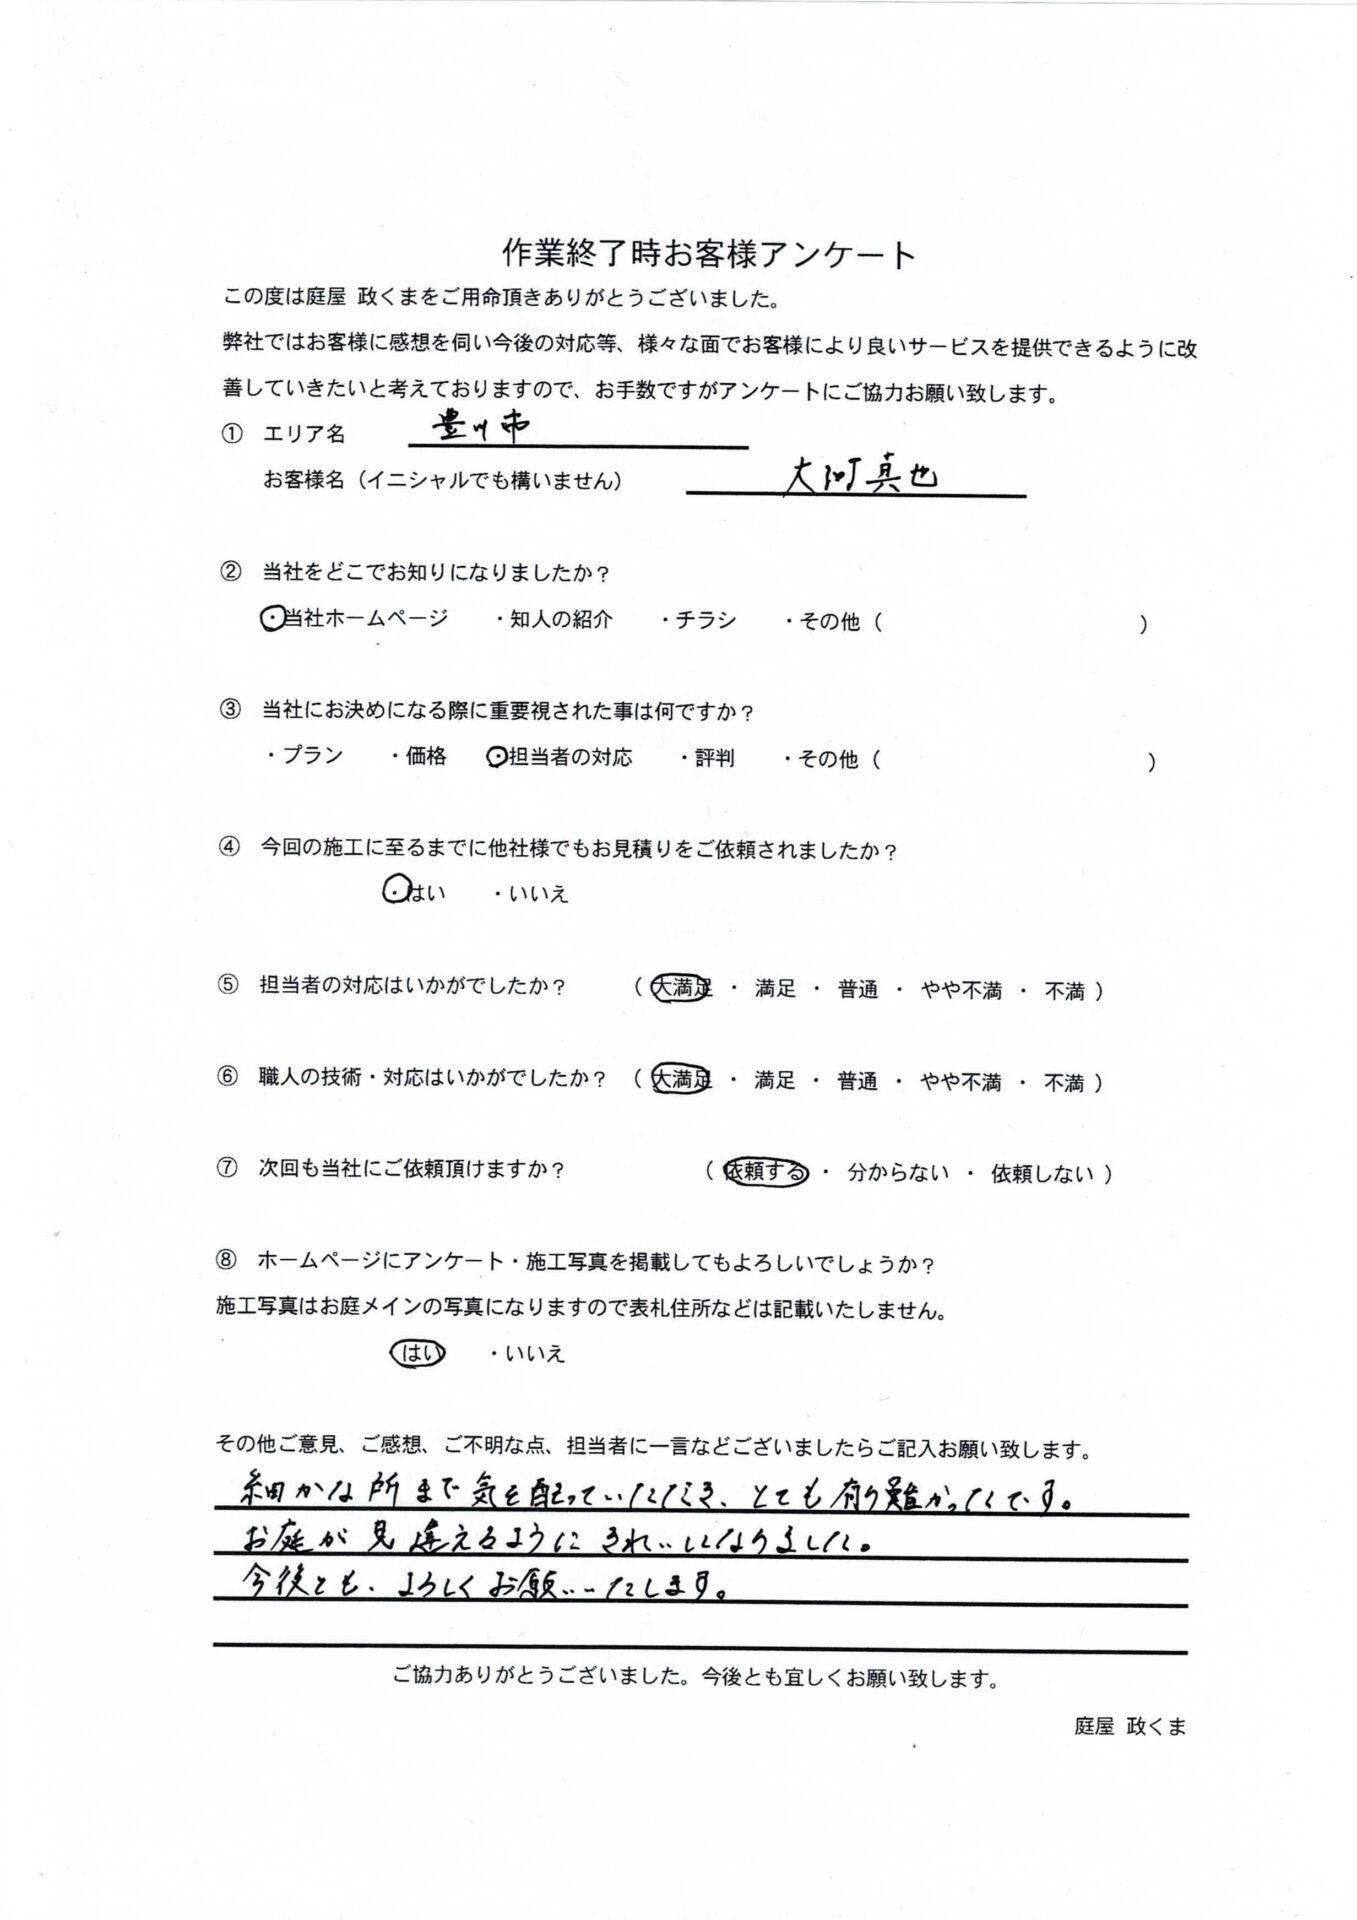 作業終了時お客様アンケート
この度は庭屋 政くまをご用命頂きありがとうございました。
弊社ではお客様に感想を伺い今後の対応等、様々な面でお客様により良いサービスを提供できるように改
善していきたいと考えておりますので、お手数ですがアンケートにご協力お願い致します。
① エリア名 豊川市
お客様名（イニシャルでも構いません） 大河真也
② 当社をどこでお知りになりましたか？
・当社ホームページ ・知人の紹介 ・チラシ ・その他（ ）
③ 当社にお決めになる際に重要視された事は何ですか？
・プラン ・価格 ・担当者の対応 ・評判 ・その他（ ）
④ 今回の施工に至るまでに他社様でもお見積りをご依頼されましたか？
・はい ・いいえ
⑤ 担当者の対応はいかがでしたか？ （ 大満足 ・ 満足 ・ 普通 ・ やや不満 ・ 不満 ）
⑥ 職人の技術・対応はいかがでしたか？ （ 大満足 ・ 満足 ・ 普通 ・ やや不満 ・ 不満 ）
⑦ 次回も当社にご依頼頂けますか？ （ 依頼する ・ 分からない ・ 依頼しない ）
⑧ ホームページにアンケート・施工写真を掲載してもよろしいでしょうか？
施工写真はお庭メインの写真になりますので表札住所などは記載いたしません。
はい ・いいえ
その他ご意見、ご感想、ご不明な点、担当者に一言などございましたらご記入お願い致します。
細かな所まで気を配っていただき、とても有り難かったです。
お庭が見違えるようにきれいになりました。
今後とも、よろしくお願いいたします。
ご協力ありがとうございました。今後とも宜しくお願い致します。
庭屋 政くま